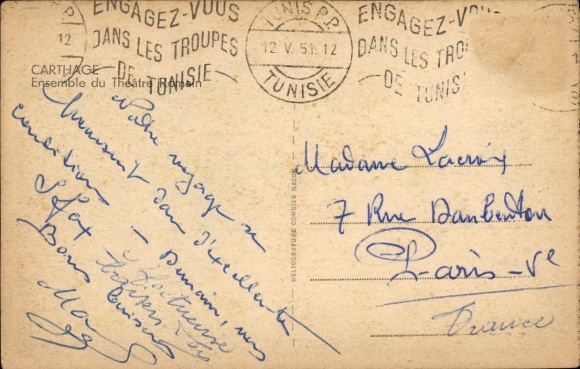 ENGAGEZ-VOUS
DANS LES TROUPES
DE TUNISIE
TUNIS R.P.
12 V. 51. 12
TUNISIE
ENGAGEZ-VOUS
DANS LES TROU
DE TUNIS
CARTHAGE
Ensemble du Théâtre Romain
Notre voyage se
poursuit dans d'excellentes
conditions - Demain, nous
Sfax
Bons baisers
HELIOGRAVURE COMBIER MACON
Madame Lacroix
7 Rue Daubenton
Paris-Ve
France